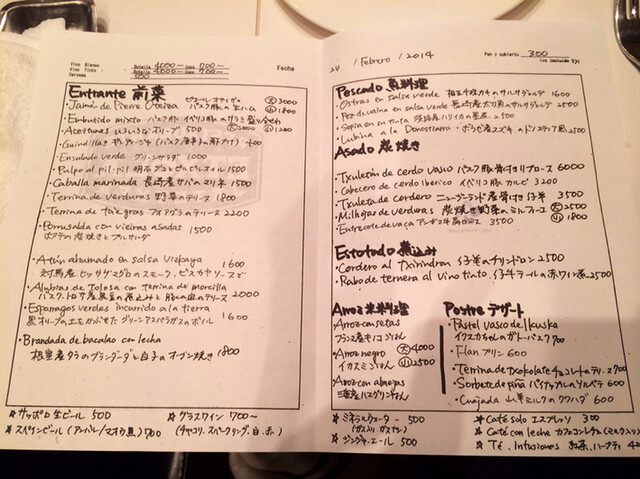 Vino Blanco Botella 4000~ Copa 700~
Vino Tinto Botella 4000~ Copa 700~
Cerveza 500
Fecha
Entrante 前菜
・Jamón de Pierre Oteiza 大 3000
バスク豚の生ハム 小 1800
・Embutido mixto バスク豚、イベリコ豚のサラミ盛り合わせ
・Aceitunas いろいろなオリーブ 500 大 2000 小 1200
・Guindillas ギンディージャ (バスク産青唐辛子の酢漬け) 400
・Ensalada verde グリーンサラダ 1000
・Pulpo al pil-pil 明石ダコとピルピルオイル 1500
・Caballa marinada 長崎産サバのマリネ 1500
・Terrina de verduras 野菜のテリーヌ 1800
・Terrina de foie gras フォアグラのテリーヌ 2200
・Porrusalda con vieiras asadas 1500
ホタテの炭焼きとプルサルダ
・Atún ahumado en salsa Vizcaya 1600
対馬産ヒッサゲマグロのスモーク、ビスカヤソースで
・Alubias de Tolosa con terrina de morcilla
バスク、トロサ産黒豆の煮込みと豚の血のテリーヌ 2000
・Esparragos verdes incurrido a la tierra
黒オリーブの土をかぶせたグリーンアスパラガスのボイル 1600
・Brandada de bacalao con lecha
根室産タラのブランダーダと白子のオーブン焼き 1800
☆ サッポロ生ビール 500
☆ グラスワイン 700~
☆ スペインビール (アンバル/マオウ黒) 700
(チャコリ、スパークリング、白、赤)
24 / Febrero / 2014
Pan y cubierto 300
iva incluido 5%
Pescado 魚料理
・Ostras en salsa verde カキのサルサヴェルデ 1600
・Pez de vaina en salsa verde 長崎産太刀魚のサルサヴェルデ 2500
・Sepia en su tinta 淡路産ハリイカの墨煮 2500
・Lubina a la Donostiarra スズキのドノスティア風 2500
Asado 炭焼き
・Txuletón de cerdo vasco バスク豚骨付きリブロース 6000
・Cabecero de cerdo iberico イベリコ豚カルビ 3200
・Txuleta de cordero ニュージーランド産骨付き仔羊 3500
・Milhojas de verduras 炭焼き野菜のミルフィーユ 大 2500 小 1800
・Entrecote de vaca アンガス牛肩ロース 3500
Estofado 煮込み
・Cordero al txirindron 仔羊のチリンドロン 2500
・Rabo de ternera al vino tinto 仔牛テールの赤ワイン煮 2500
Arroz 米料理
・Arroz con setas
フランス産キノコごはん
・Arroz negro 大 4000
イカスミごはん 小 2500
・Arroz con almejas
三陸産ハマグリごはん
Postre デザート
・Pastel vasco de Ikuska
イクスカちゃんのガトーバスク 700
・Flan プリン 600
・Terrina de txokolate チョコレートのテリーヌ 700
・Sorbete de piña パイナップルのソルベテ 600
・Cuajada 山羊ミルクのクアハダ 600
☆ ミネラルウォーター 500
(ガス入り、ガスナシ)
☆ ジンジャーエール 500
☆ Café solo エスプレッソ 300
☆ Café con leche カフェコンレチェ (ミルク入り)
☆ Té. Infusiones 紅茶、ハーブティ